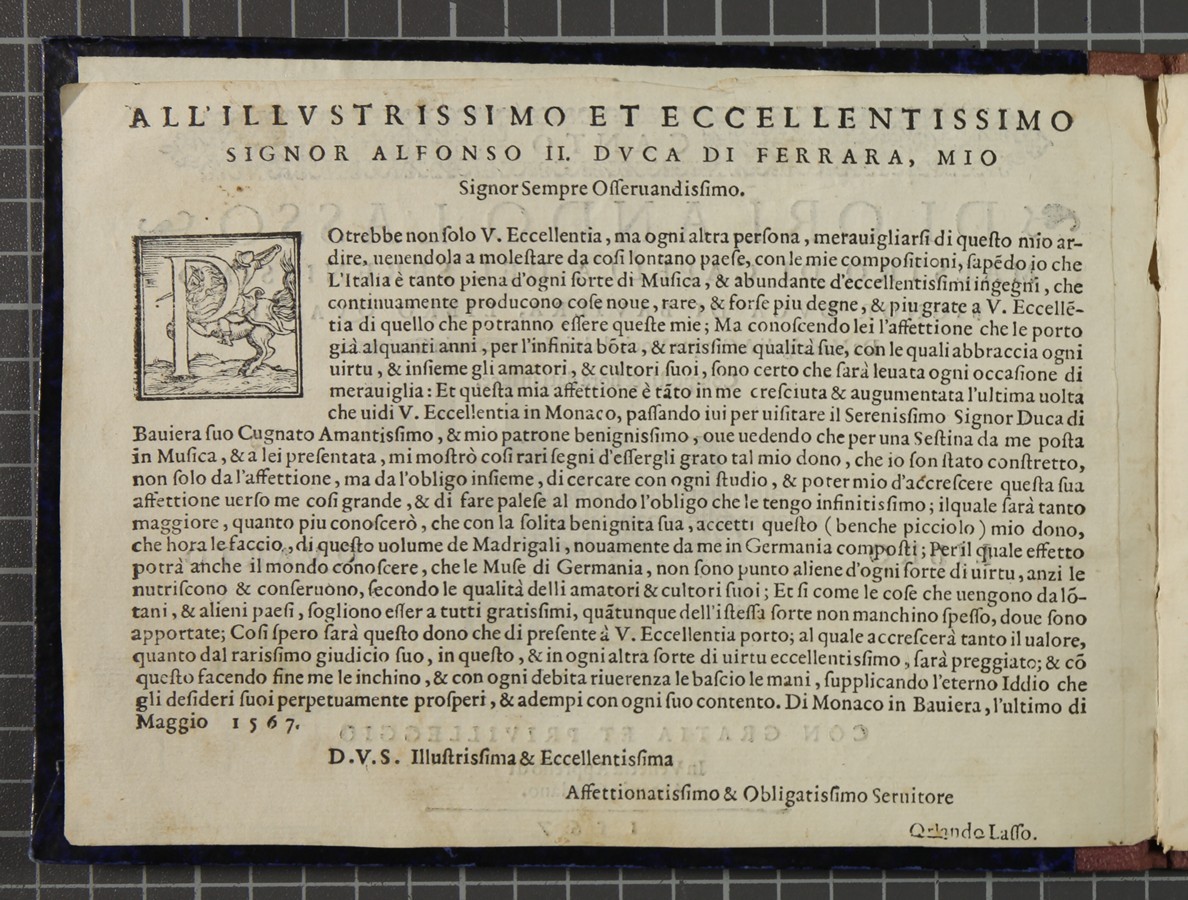 ALL'ILLVSTRISSIMO ET ECCELLENTISSIMO
SIGNOR ALFONSO II. DVCA DI FERRARA, MIO
Signor Sempre Oſſeruandiſsimo.
POtrebbe non ſolo V. Eccellentia, ma ogni altra perſona, merauigliarſi di queſto mio ar-
dire, uenendola a moleſtare da coſi lontano paeſe, con le mie compoſitioni, ſapēdo io che
L'Italia è tanto piena d'ogni ſorte di Muſica, & abundante d'eccellentiſsimi ingegni, che
continuamente producono coſe noue, rare, & forſe piu degne, & piu grate a V. Eccellē-
tia di quello che potranno eſſere queſte mie; Ma conoſcendo lei l'affettione che le porto
già alquanti anni, per l'infinita bōta, & rariſsime qualità ſue, con le quali abbraccia ogni
uirtu, & inſieme gli amatori, & cultori ſuoi, ſono certo che ſarà leuata ogni occaſione di
merauiglia: Et queſta mia affettione è tāto in me creſciuta & augumentata l'ultima uolta
che uidi V. Eccellentia in Monaco, paſſando iui per uiſitare il Sereniſsimo Signor Duca di
Bauiera ſuo Cugnato Amantiſsimo, & mio patrone benigniſsimo, oue uedendo che per una Seſtina da me poſta
in Muſica, & a lei preſentata, mi moſtrò coſi rari ſegni d'eſſergli grato tal mio dono, che io ſon ſtato conſtretto,
non ſolo da l'affettione, ma da l'obligo inſieme, di cercare con ogni ſtudio, & poter mio d'accreſcere queſta ſua
affettione uerſo me coſi grande, & di fare paleſe al mondo l'obligo che le tengo infinitiſsimo; ilquale ſarà tanto
maggiore, quanto piu conoſcerò, che con la ſolita benignita ſua, accetti queſto (benche picciolo) mio dono,
che hora le faccio, di queſto uolume de Madrigali, nouamente da me in Germania compoſti; Per il quale effetto
potrà anche il mondo conoſcere, che le Muſe di Germania, non ſono punto aliene d'ogni ſorte di uirtu, anzi le
nutriſcono & conſeruono, ſecondo le qualità delli amatori & cultori ſuoi; Et ſi come le coſe che uengono da lō-
tani, & alieni paeſi, ſogliono eſſer a tutti gratiſsimi, quātunque dell'iſteſſa ſorte non manchino ſpeſſo, doue ſono
apportate; Coſi ſpero ſarà queſto dono che di preſente à V. Eccellentia porto; al quale accreſcerà tanto il ualore,
quanto dal rariſsimo giudicio ſuo, in queſto, & in ogni altra ſorte di uirtu eccellentiſsimo, ſarà preggiato; & cō
queſto facendo fine me le inchino, & con ogni debita riuerenza le baſcio le mani, ſupplicando l'eterno Iddio che
gli deſideri ſuoi perpetuamente proſperi, & adempi con ogni ſuo contento. Di Monaco in Bauiera, l'ultimo di
Maggio 1567.
D.V.S. Illuſtriſsima & Eccellentiſsima
Affettionatiſsimo & Obligatiſsimo Seruitore
Orlando Laſſo.